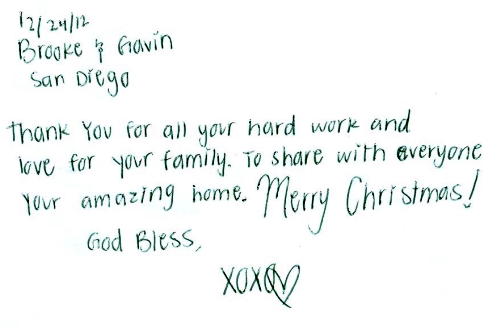 12/24/12
Brooke & Gavin
San Diego
Thank You for all your hard work and
love for your family. To share with everyone
Your amazing home. Merry Christmas!
God Bless,
XOXO